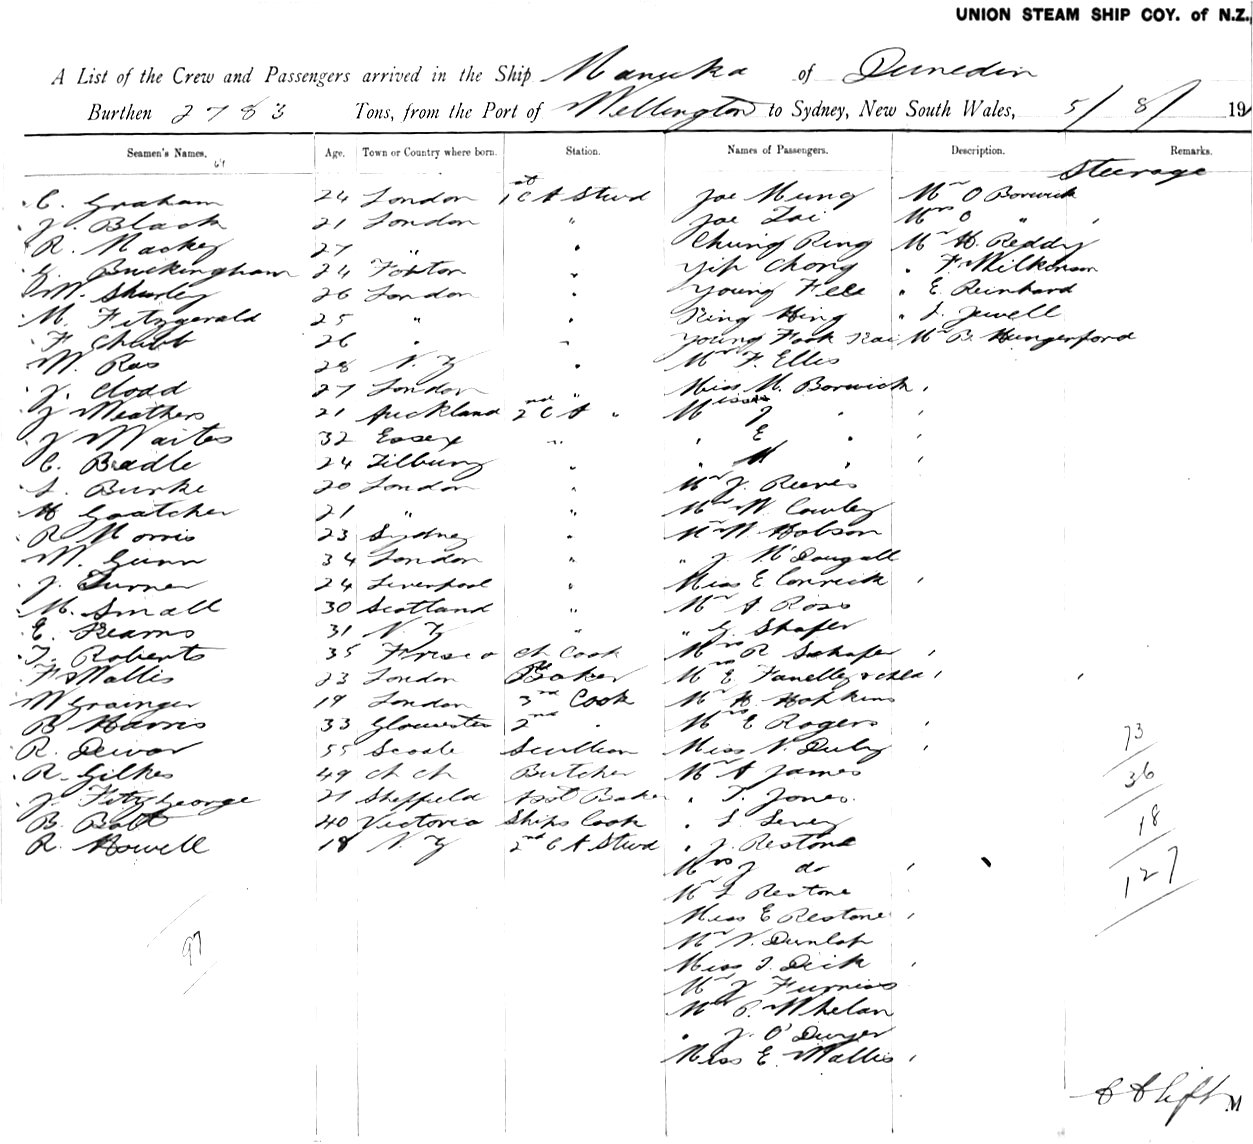 UNION STEAM SHIP COY. of N.Z.
A List of the Crew and Passengers arrived in the Ship Manuka of Dunedin
Burthen 2783 Tons, from the Port of Wellington to Sydney, New South Wales, 5/8/ 19
Seamen's Names. Age. Town or Country where born. Station. Names of Passengers. Description. Remarks.
69
Steerage
C. Graham 24 London 1st C A Stwd Joe Mung Mr O Borwick
J. Black 21 London " Joe Mrs O "
R. Mackey 27 " " Chung Ring Mr H. Reddy
G. Buckingham 24 Foxton " Yip Chong " F. Wilkinson
W. Shurley 26 London " Young " E Reinhard
M. Fitzgerald 25 " " King Hing " Jewell
F. Chubb 26 " " Young Fook Mr B. Hungerford
W. Ras 28 N. Z " Mr F. Ellis
J. Clodd 27 London " Miss M. Borwick
J Weathers 21 Auckland 2nd C A " Misses J "
J Waites 32 Essex " " E "
C. Beadle 24 Tilbury " " M "
L. Burke 20 London " Mr J. Reeves
H Goatcher 21 " " Mr W Cowley
R Morris 23 Sydney " Mr W. Hobson
M. Gunn 34 London " " J. McDougall
J. Turner 24 Liverpool " Miss E Conrick
M. Small 30 Scotland " Mr A Ross
E. Kearns 31 N. Z " " G. Shafer
T. Roberts 35 Frisco Ch Cook Mrs R Schafer
F. Wallis 23 London Baker Mrs E Fanelly & child
W Grainger 19 London 3rd Cook Mr H Hopkins
B Harris 33 Gloucester 2nd " Mrs E Rogers
R. Dewar 55 Scullion Miss N. Duly
R. Gilkes 49 Ch Ch Butcher Mr A James
J. FitzGeorge 21 Sheffield Asst Baker " T. Jones
B. Batt 40 Victoria Ships Cook " L
R. Howell 18 N Z 2nd C A Stwd " J. Restone
Mrs J do
Mr L Restone
Miss E Restone
Mr N. Dunlop
Miss J. Dick
Mr J Furniss
Mr P. Whelan
" J. O'Dwyer
Miss E. Wallis
97
73
36
18
127
M